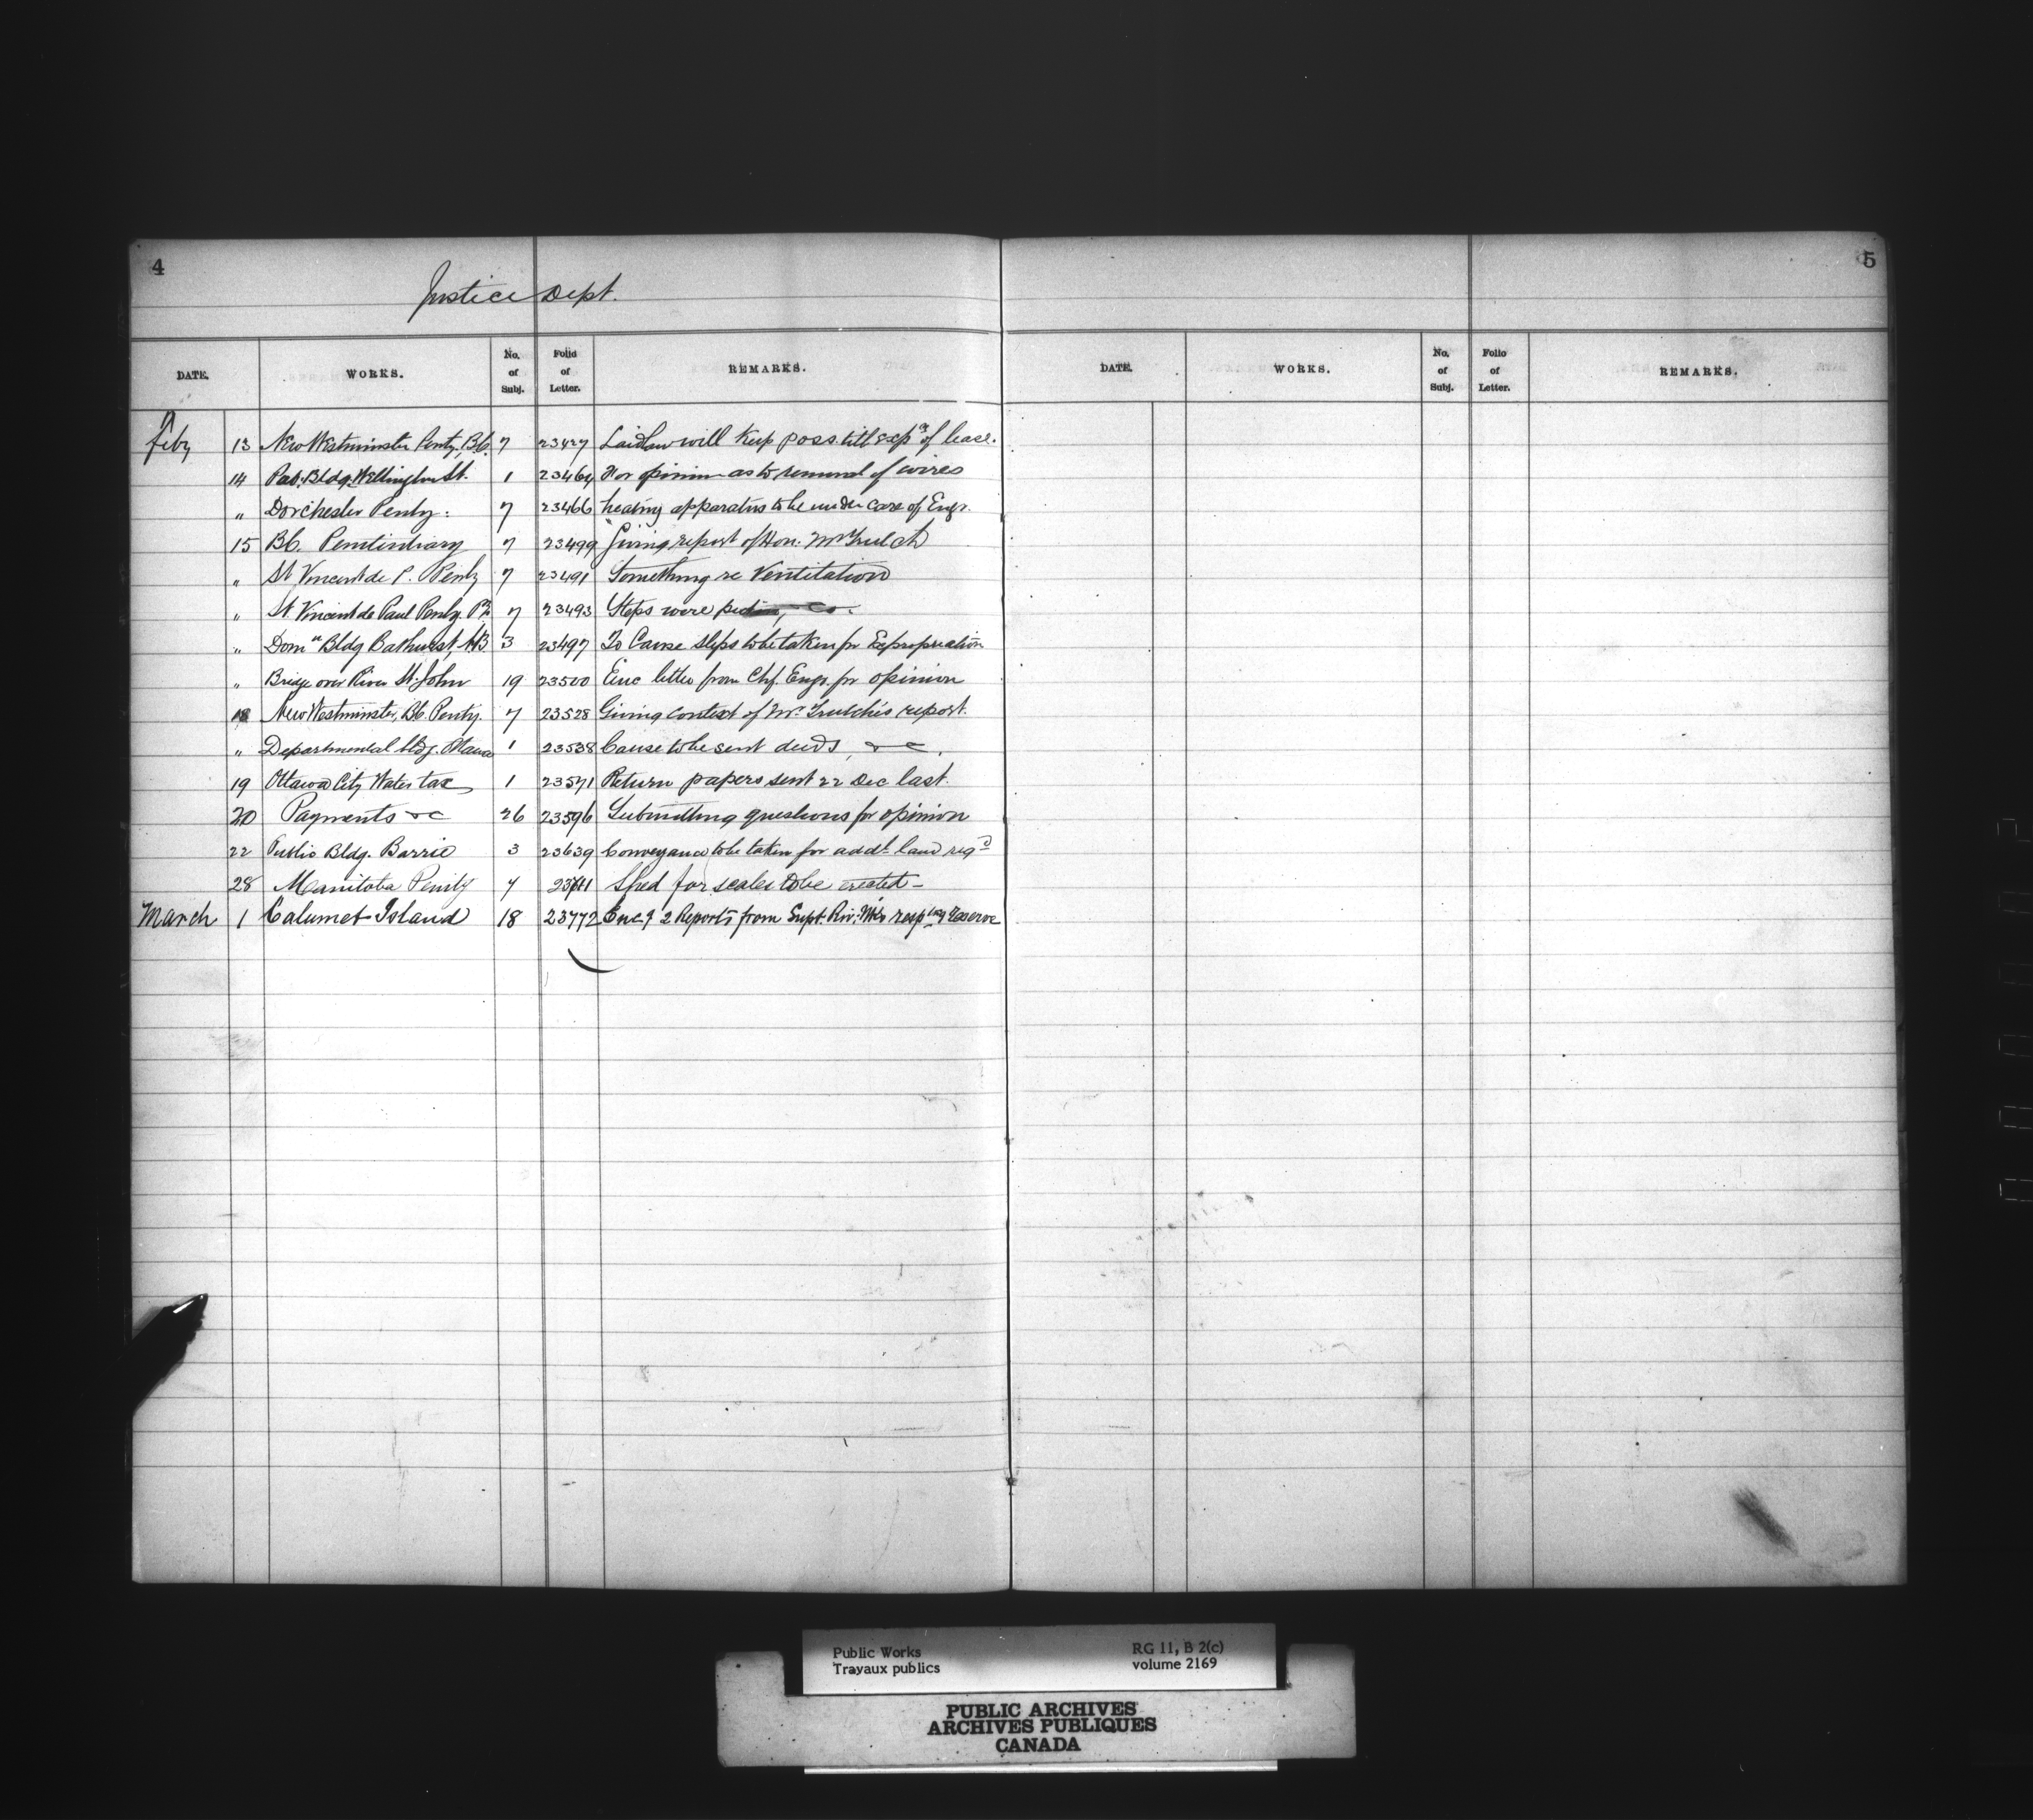 4
Justice Dept.
DATE. WORKS. No. of Subj. Folio of Letter. REMARKS.
Feby 13 New Westminster Penty, B.C. 7 23427 Laidlaw will keep poss. till expn of lease.
14 Pub. Bldg. Wellington St. 1 23464 For opinion as to removal of wires
" Dorchester Penty: 7 23466 heating apparatus to be under care of Engr.
15 B.C. Penitentiary 7 23499 Giving report of Hon. Mr Trutch
" St Vincent de P. Penty 7 23491 Something re Ventilation
" St. Vincent de Paul Penty. P.Q. 7 23493 Steps were
" Domn Bldg Bathurst, N.B 3 23497 To Cause steps to be taken for Expropriation
" Bridge over River St. John 19 23500 Enc letter from Chf. Engr. for opinion
18 New Westminster, B.C. Penty. 7 23528 Giving context of Mr. Trutch's report.
" Departmental bldg. Ottawa 1 23538 Cause to be sent deeds, &c.
19 Ottawa City Water tax 1 23571 Return papers sent 22 Dec last.
20 Payments &c 26 23596 Submitting questions for opinion
22 Public Bldg. Barrie 3 23639 Conveyance to be taken for addl. land reqd
28 Manitoba Penity 7 Shed for scales to be erected -
March 1 Calumet Island 18 23772 Encg 2 Reports from Supt. Riv: Wks respting Reserve
5
DATE. WORKS. No. of Subj. Folio of Letter. REMARKS.
Public Works RG 11, B 2(c)
Travaux publics volume 2169
PUBLIC ARCHIVES
ARCHIVES PUBLIQUES
CANADA